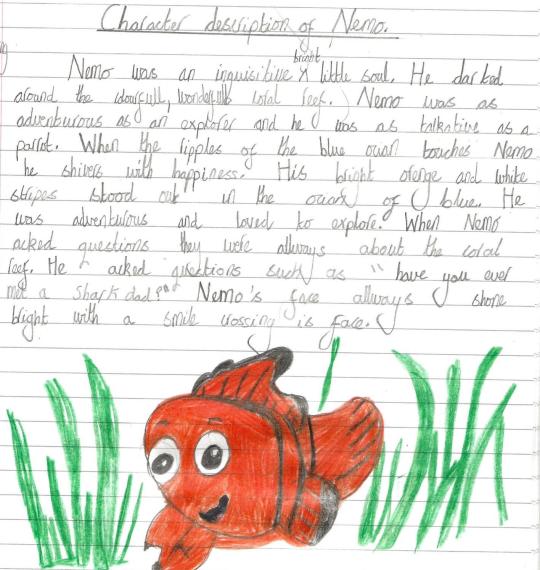 Character description of Nemo.
Nemo was an inquisitive bright little soul. He darted
around the colourfull, wonderfull coral reef. Nemo was as
adventurous as an explorer and he was as talkative as a
parrot. When the ripples of the blue ocean touches Nemo
he shivers with happiness. His bright orenge and white
stripes stood out in the ocean of blue. He
was adventurous and loved to explore. When Nemo
acked questions they were allways about the coral
reef. He acked questions such as "have you ever
met a shark dad?" Nemo's face allways shone
bright with a smile crossing is face.